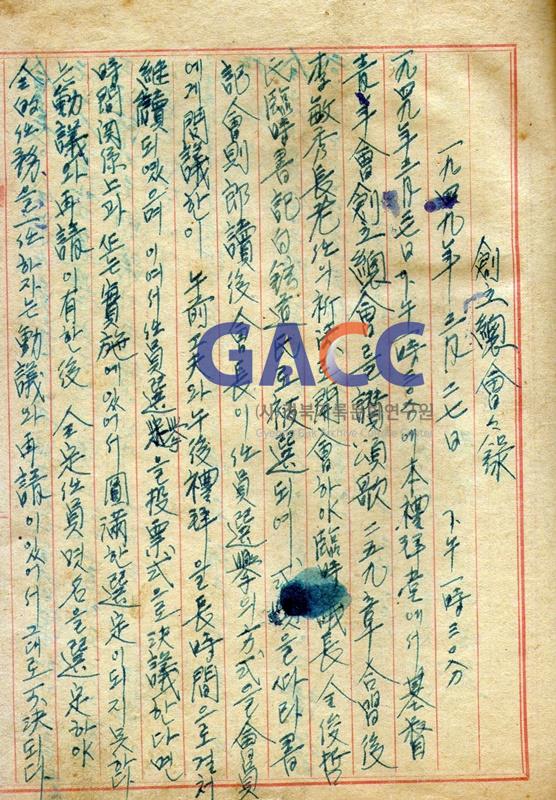 創立總會會錄
一九四九年 三月 二七日 下午 一時三〇分
一九四九年三月二七日 下午一時三〇分에 本禮拜堂에서 基督
靑年會創立總會를 讚頌歌 二五九章 合唱後
李敏秀長老任의 祈禱 開會하야 臨時 長 全俊哲
氏 臨時書記 白 氏 被選되여 을 따라 書
記 會則郎讀後 會長이 任員選擧의 方式을 會員
에게 問議한이 午前工夫와 午後禮拜을 長時間으로 결처
繼續되였으며 이여서 任員選擧을 投票式으로 決議한다면
時間関係는과 또는 實施에있어서 圓滿한 選定이되지못한다
는 動議와 再請이 有한後 全定任員 몃名을 選定하야
全的任務을 一任하자는 動議와 再請이 있어서 그대로 可決되다
GACC